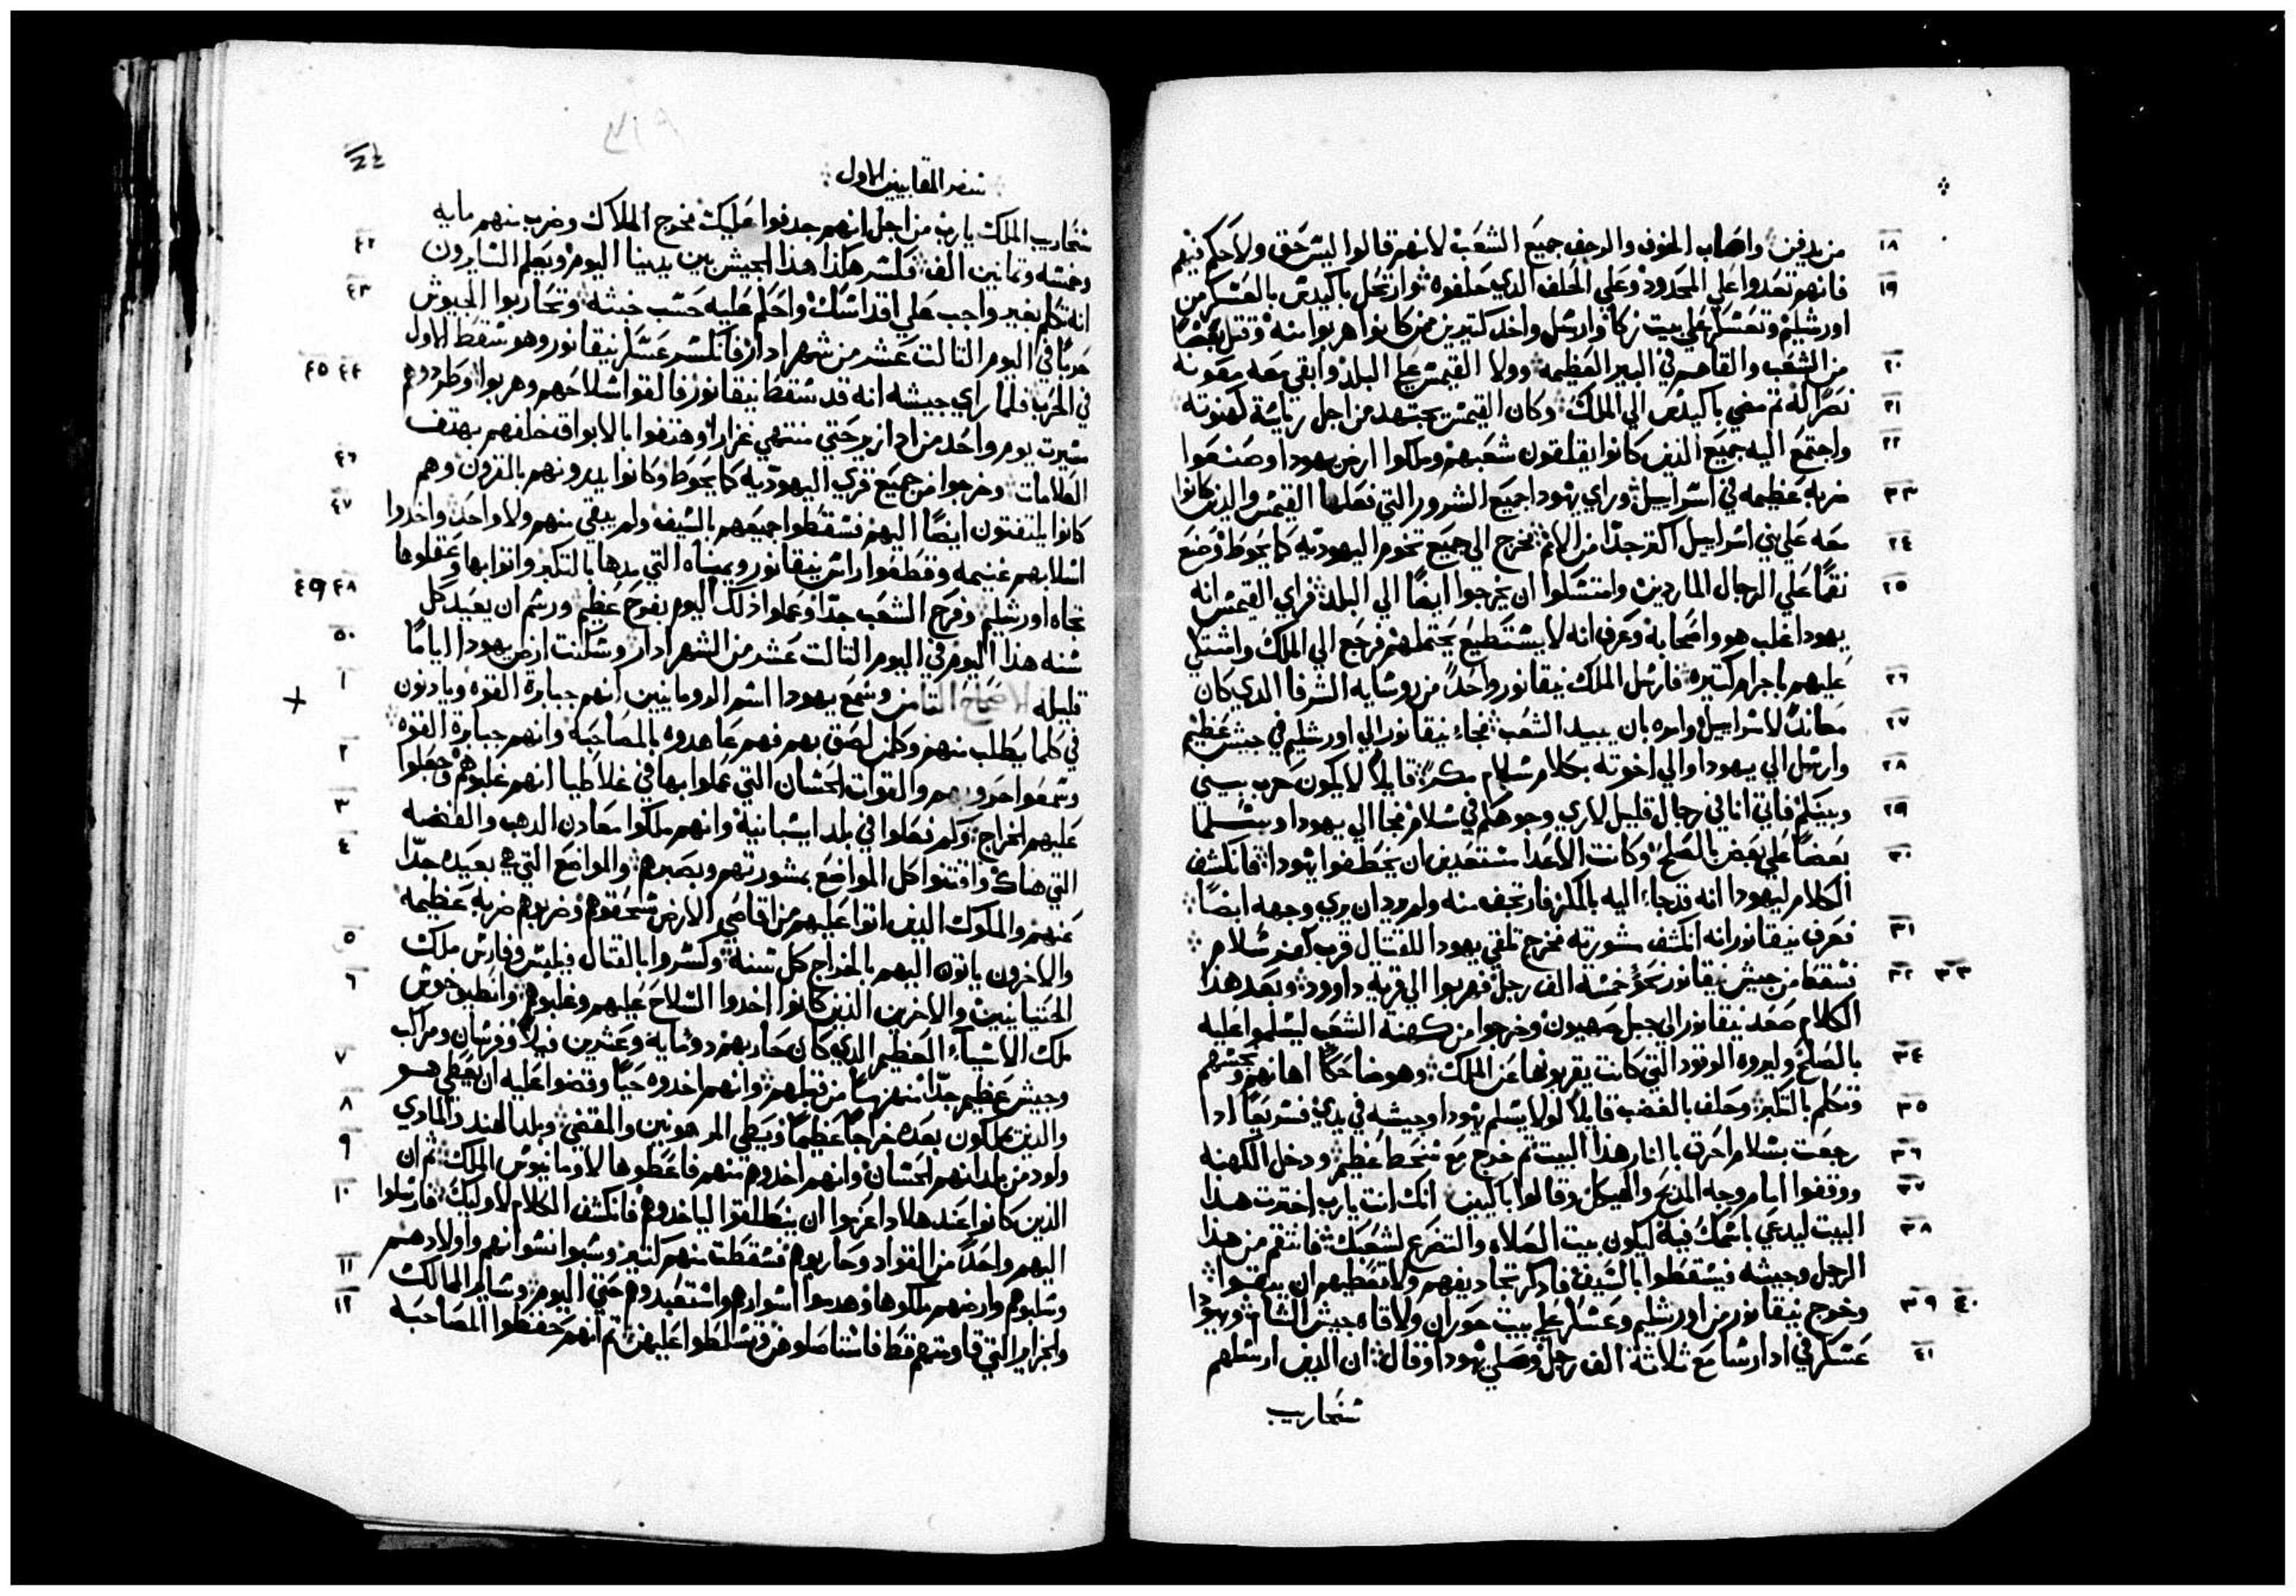 ١٨ من يدفن واصاب الخوف والرجف جميع الشعب لانهم قالوا ليس حق ولا حكم فيهم
١٩ فانهم تعدوا علي المحدود وعلي الحلف الدي حلفوه وارتحل باكيدس بالعسكر من
اورشليم وتعسكر علي بيت زكا وارسل واخد كتيرين من كانوا هربوا منه وقتل بعضا
٢٠ من الشعب والقاهم في البير العظيمه وولا القيمس علي البلد وابقي معه معونه
٢١ نصرا له تم مضي باكيدس الي الملك وكان القيمس يجتهد من اجل رياسة كهنوته
٢٢ واجتمع اليه جميع الدين كانوا يقلقون شعبهم وملكوا ارض يهودا وصنعوا
٢٣ ضربه عظيمه في اسراييل وراي يهودا جميع الشرور التي فعلها القيمس والدين كانوا
٢٤ معه علي بني اسراييل اكتر جدا من الامم فخرج الي جميع تخوم اليهوديه كما يحوط وصنع
٢٥ نقما علي الرجال الماردين وامتسلوا ان يخرجوا ايضا الي البلد فراي القيمس انه
يهودا غلب هو واصحابه وعرف انه لا يستطيع يحتملهم فرجع الي الملك واشتكي
٢٦ عليهم باجرام كتيره فارسل الملك نيقانور واحدا من روسايه الشرفا الدي كان
٢٧ معاندا لاسراييل وامره بان يبيد الشعب فجاء نيقانور الي اورشليم في جيش عظيم
٢٨ وارسل الي يهودا والي اخوته بكلام سلام بمكر قايلا لا يكون حرب بيني
٢٩ وبينكم فاني اتا في رجال قليل لاري وجوهكم في سلام فجا الي يهودا وسلما
٣٠ بعضا علي بعض بالصلح وكانت الاعدا مستعدين ان يخطفوا يهودا فانكشف
الكلام ليهودا انه قد جاء اليه بالمكر فارتجف منه ولم يرد ان يري وجهه ايضا
٣١ فعرف نيقانور انه انكشف مشورته فخرج تلقي يهودا للقتال قرب كفر سلام
٣٢ ٣٣ فسقط من جيش نيقانور نحو خمسة الف رجل فهربوا الي قرية داوود وبعد هدا
الكلام صعد نيقانور الي جبل صهيون وخرجوا من كهنة الشعب ليسلموا عليه
٣٤ بالصلح وليروه الوقود التي كانت يقربونها عن الملك وهو ضاحكا اهانهم ونجسهم
٣٥ وتكلم بالتكبر وحلف بالغضب قايلا لولا يسلم يهودا وجيشه في يدي فسريعا ادا
٣٦ رجعت بسلام احرق بالنار هدا البيت تم خرج مع سخط عظيم ودخل الكهنه
٣٧ ووقفوا امام وجه المدبح والهيكل وقالوا باكيين انك انت يارب اخترت هدا
٣٨ البيت ليدعي باسمك فيه ليكون بيت الصلاه والتضرع لشعبك فانتقم من هدا
الرجل وجيشه فيسقطوا بالسيف فادكر تجاديفهم ولا تعطيهم ان يبقوا
٣٩ ٤٠ وخرج نيقانور من اورشليم وعسكر علي بيت حوران ولاقاه جيش الشام ويهودا
٤١ عسكر في ادارسا مع تلاتة الف رجل وصلي يهودا وقال ان الدين ارسلهم
سنحاريب
سفر المقابيين الاول
سنحاريب الملك يارب من اجل انهم جدفوا عليك فخرج الملاك وضرب منهم مايه
٤٢ وخمسه وتمانين الف فكسر هكدا هدا الجيش بين يدينا اليوم ويعلم السايرون
٤٣ انه تكلم بغير واجب علي اقداسك واحكم عليه حسب خبثه وتحاربوا الجيوش
حربا في اليوم التالت عشر من شهر ادار فانكسر عسكر نيقانور وهو سقط الاول
٤٤ ٤٥ في الحرب فلما راي جيشه انه قد سقط نيقانور فالقوا سلاحهم وهربوا وطردوهم
مسيرت يوم واحد من ادازير حتي منتهي غزارا وهتفوا بالابواق خلفهم بهتف
٤٦ العلامات وخرجوا من جميع قري اليهوديه كما يحوط وكانوا يدرونهم بالقرون وهم
٤٧ كانوا يلتفتون ايضا اليهم فسقطوا جميعهم بالسيف ولم يبقي منهم ولا واحد واخدوا
اسلابهم غنيمه وقطعوا راس نيقانور ويميناه التي مدها بالتكبر واتوا بها وعقلوها
٤٨ ٤٩ تجاه اورشليم وفرح الشعب جدا وعملوا دلك اليوم بفرح عظيم ورسم ان يعيد كل
٥٠ سنه هدا اليوم في اليوم التالت عشر من الشهر ادار وسكنت ارض يهودا اياما
١ قليله الاصحاح التامن وسمع يهودا اسم الرومانيين انهم جبابرة القوه ويادنون
في كلما يطلب منهم وكلمن لصق بهم فهم عاهدوه بالمصاحبه وانهم جبابرة القوه
٢ وسمعوا حروبهم والقوات الحسان التي عملوا بها في غلاطيا انهم غلبوهم وجعلوا
٣ عليهم الخراج وكم فعلوا في بلد اسبانية وانهم ملكوا معادن الدهب والفضه
٤ التي هناك واقتنوا كل المواضع بمشورتهم وبصبرهم والمواضع التي هي بعيده جدا
عنهم والملوك الدين اتوا عليهم من اقاصي الارض سحقوهم وضربوهم ضربه عظيمه
٥ والاخرون ياتون اليهم بالخراج كل سنة وكسروا بالقتال فيلبس وفارس ملك
٦ الحتيانيين والاخرين الدين كانوا اخدوا السلاح عليهم وغلبوهم وانطيوخوس
ملك الاسياء العظيم الدي كان حاربهم دو مايه وعشرين فيلا وفرسان ومراكب
٧ وجيش عظيم جدا منهزما من قبلهم وانهم اخدوه حيا وقضوا عليه ان يعطي هو
٨ والدين يملكون بعده خرجا عظيما ويعطي المرهونين والمقضي وبلد الهند والمادي
٩ ولود من بلدانهم الحسان وانهم اخدوهم منهم فاعطوها لاومانيوس الملك ثم ان
١٠ الدين كانوا عند هلادا عزموا ان ينطلقوا لياخدوهم فانكشف الكلام لاوليك فارسلوا
اليهم واحدا من القواد وحاربوهم فسقطت منهم كتير وسبوا نسوانهم واولادهم
١١ وسلبوهم وارضهم ملكوها وهدموا اسوارهم واستعبدوهم حتي اليوم وساير الممالك
١٢ والجزاير التي قاومتهم قط فاستاصلوهن وتسلطوا عليهن تم انهم حفظوا المصاحبه